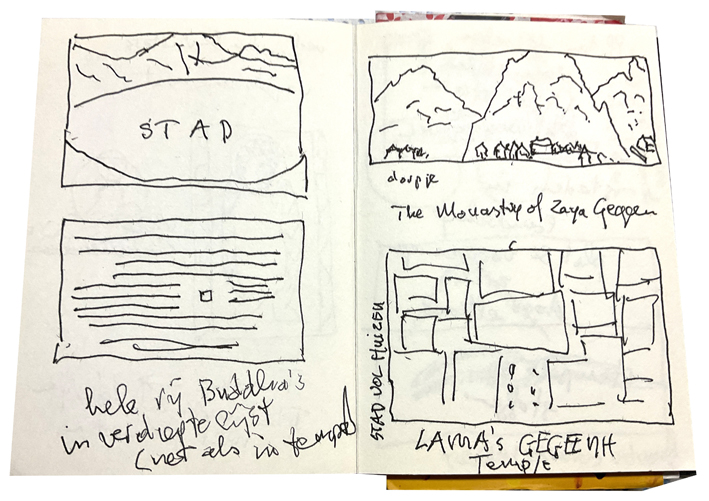 STAD
hele rij Buddha's
in verdiepte lijst
(net als in tempel
dorpje
The Monastry of Zaya Gegeen
STAD VOL HUIZEN
LAMA's GEGEENH
Temple